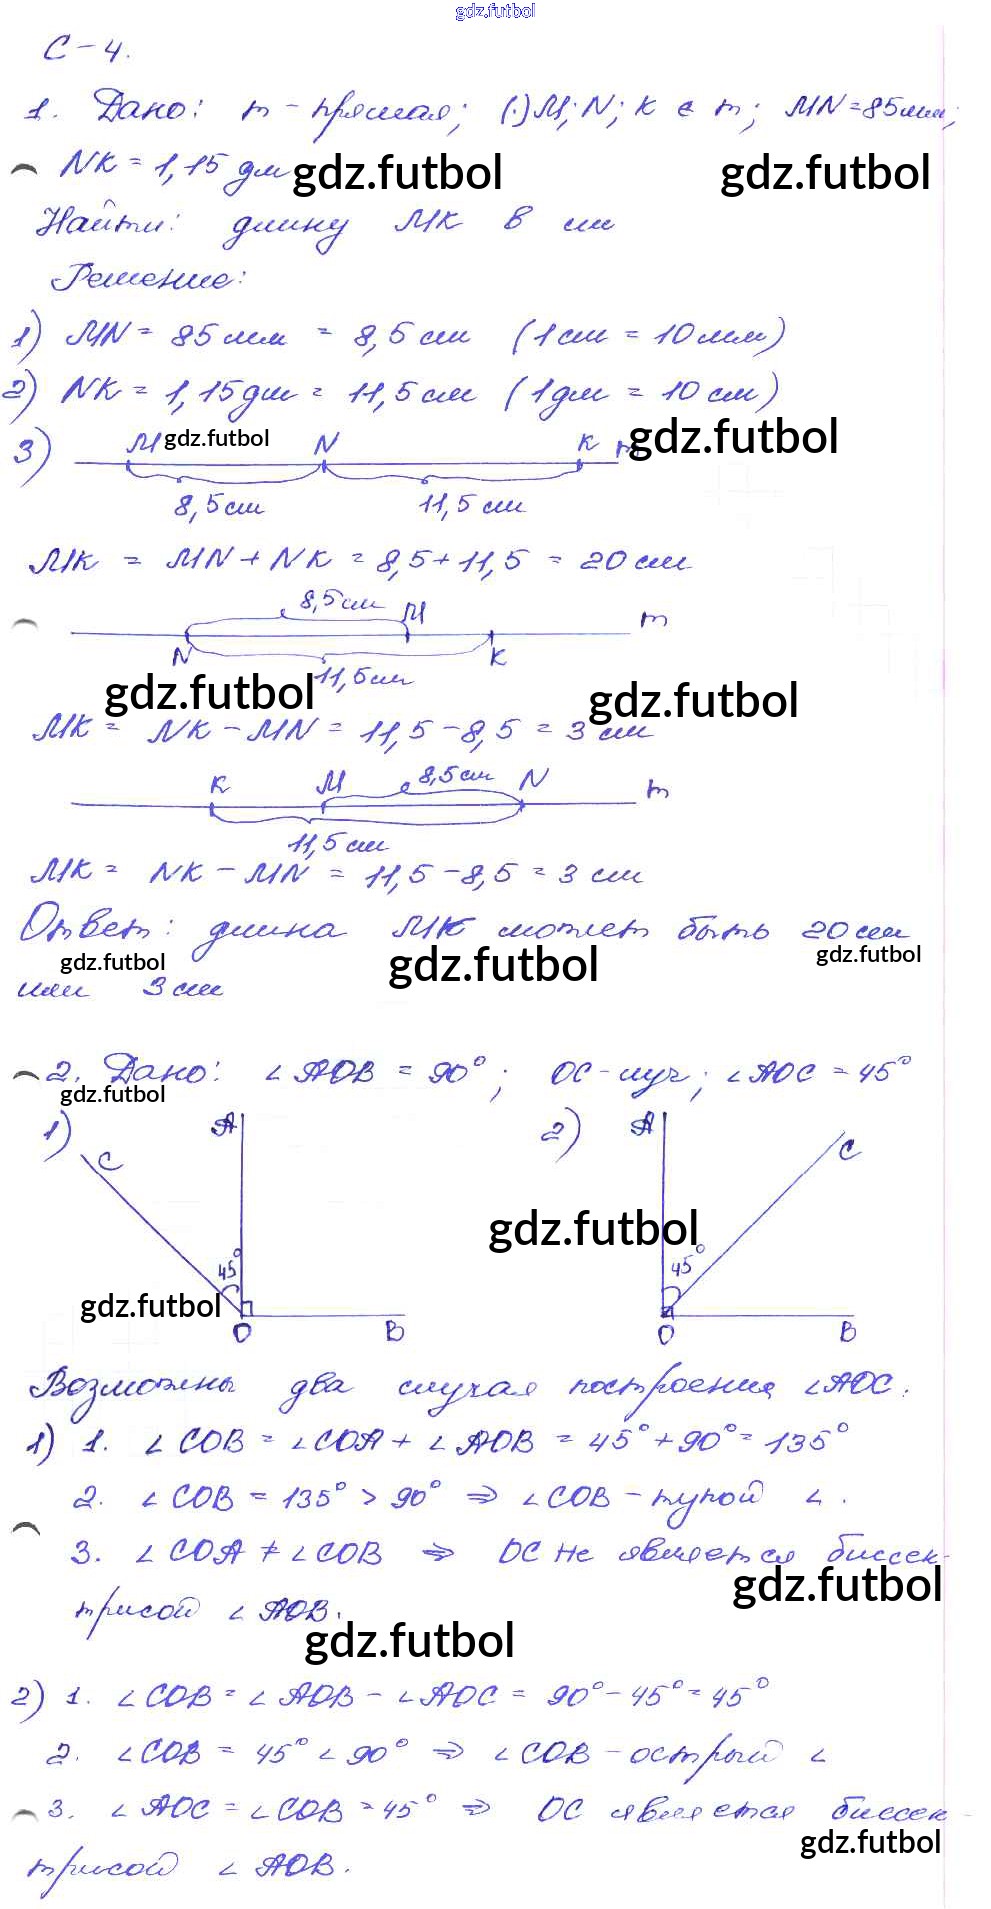 gdz.futbol
С-4.
1. Дано: m - прямая; (.)M; N; K ∈ m; MN = 85мм;
NK = 1,15 дм gdz.futbol gdz.futbol
Найти: длину MK в см
Решение:
1) MN = 85 мм = 8,5 см (1 см = 10 мм)
2) NK = 1,15 дм = 11,5 см (1 дм = 10 см)
3) M gdz.futbol N K m gdz.futbol
8,5 см 11,5 см
MK = MN + NK = 8,5 + 11,5 = 20 см
8,5 см M m
N K
11,5 см
gdz.futbol gdz.futbol
MK = NK - MN = 11,5 - 8,5 = 3 см
K M 8,5 см N m
11,5 см
MK = NK - MN = 11,5 - 8,5 = 3 см
Ответ: длина MK может быть 20 см
gdz.futbol gdz.futbol gdz.futbol
или 3 см
2. Дано: ∠AOB = 90°; OC - луч; ∠AOC = 45°
gdz.futbol
1) A 2) A
C C
gdz.futbol
45° 45°
gdz.futbol
O B O B
Возможны два случая построения ∠AOC.
1) 1. ∠COB = ∠COA + ∠AOB = 45° + 90° = 135°
2. ∠COB = 135° > 90° ⇒ ∠COB - тупой ∠.
3. ∠COA ≠ ∠COB ⇒ OC не является биссек-
gdz.futbol
трисой ∠AOB.
gdz.futbol
2) 1. ∠COB = ∠AOB - ∠AOC = 90° - 45° = 45°
2. ∠COB = 45° < 90° ⇒ ∠COB - острый ∠
3. ∠AOC = ∠COB = 45° ⇒ OC является биссек-
gdz.futbol
трисой ∠AOB.